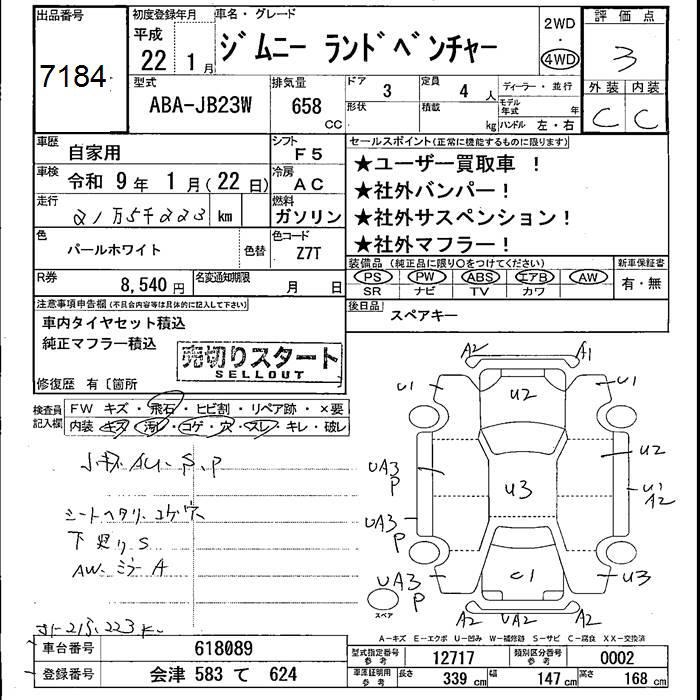 出品番号
7184
初度登録年月
平成
22年 1月
車名・グレード
ジムニー ランドベンチャー
2WD
4WD
評価点
3
外装 内装
C C
型式
ABA-JB23W
排気量
658
CC
ドア
3
形状
定員
4人
積載
kg
ディーラー・並行
モデル年式 年
ハンドル 左・右
車歴
自家用
シフト
F5
車検
令和 9年 1月(22日)
冷房
AC
走行
21万5千223 km
燃料
ガソリン
色
パールホワイト
色替
色コード
Z7T
R券
8,540円
名変通知期限
月 日
セールスポイント(正常に機能するものに限ります)
★ユーザー買取車 !
★社外バンパー!
★社外サスペンション!
★社外マフラー!
装備品(純正品に限り○をつけてください)
PS PW ABS エアB AW
SR ナビ TV カワ
新車保証書
有・無
後日品
スペアキー
注意事項申告欄(不具合内容等は具体的に記入して下さい)
車内タイヤセット積込
純正マフラー積込
売切りスタート
SELLOUT
修復歴 有〔箇所
検査員
記入欄
FW キズ・飛石・ヒビ割・リペア跡・×要
内装・キズ・汚れ・コゲ・穴・スレ・キレ・破レ
小キズ AU. S. P
シートヘタリ. コゲ穴
下廻り S
AW. ミラー A
215,223K
A2 A1
U1 U2 U1
UA3 P
U3
U2
U1 A2
UA3 P
UA3 P
C1
U3
A2 UA2 A2
スペア
A-キズ E-エクボ U-凹み W-補修跡 S-サビ C-腐食 XX-交換済
車台番号
618089
登録番号
会津 583 て 624
型式指定番号
参考
12717
類別区分番号
参考
0002
車庫証明用
参考
長さ
339 cm
幅
147 cm
高さ
168 cm